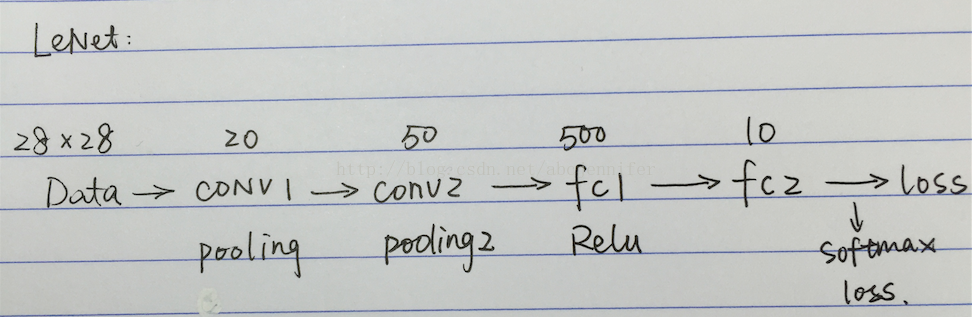 LeNet:
28×28 20 50 500 10
http://blog.csdn.net/abcjennifer
Data → CONV1 → conv2 → fc1 → fc2 → loss
↓
pooling pooling2 Relu softmax
loss.